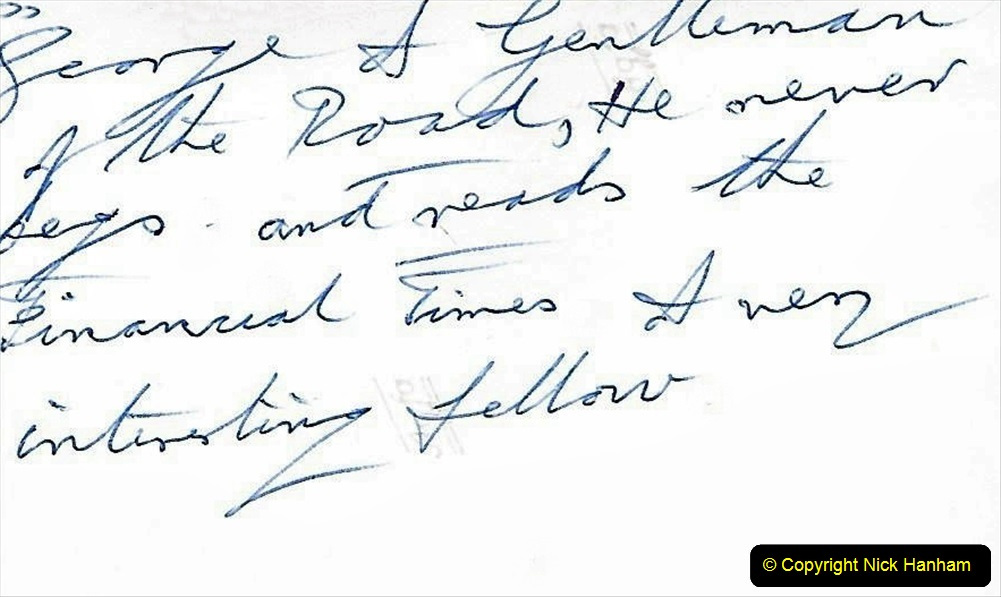 George A Gentleman
of the Road, He never
begs. and reads the
Financial Times A very
interesting fellow
© Copyright Nick Hanham